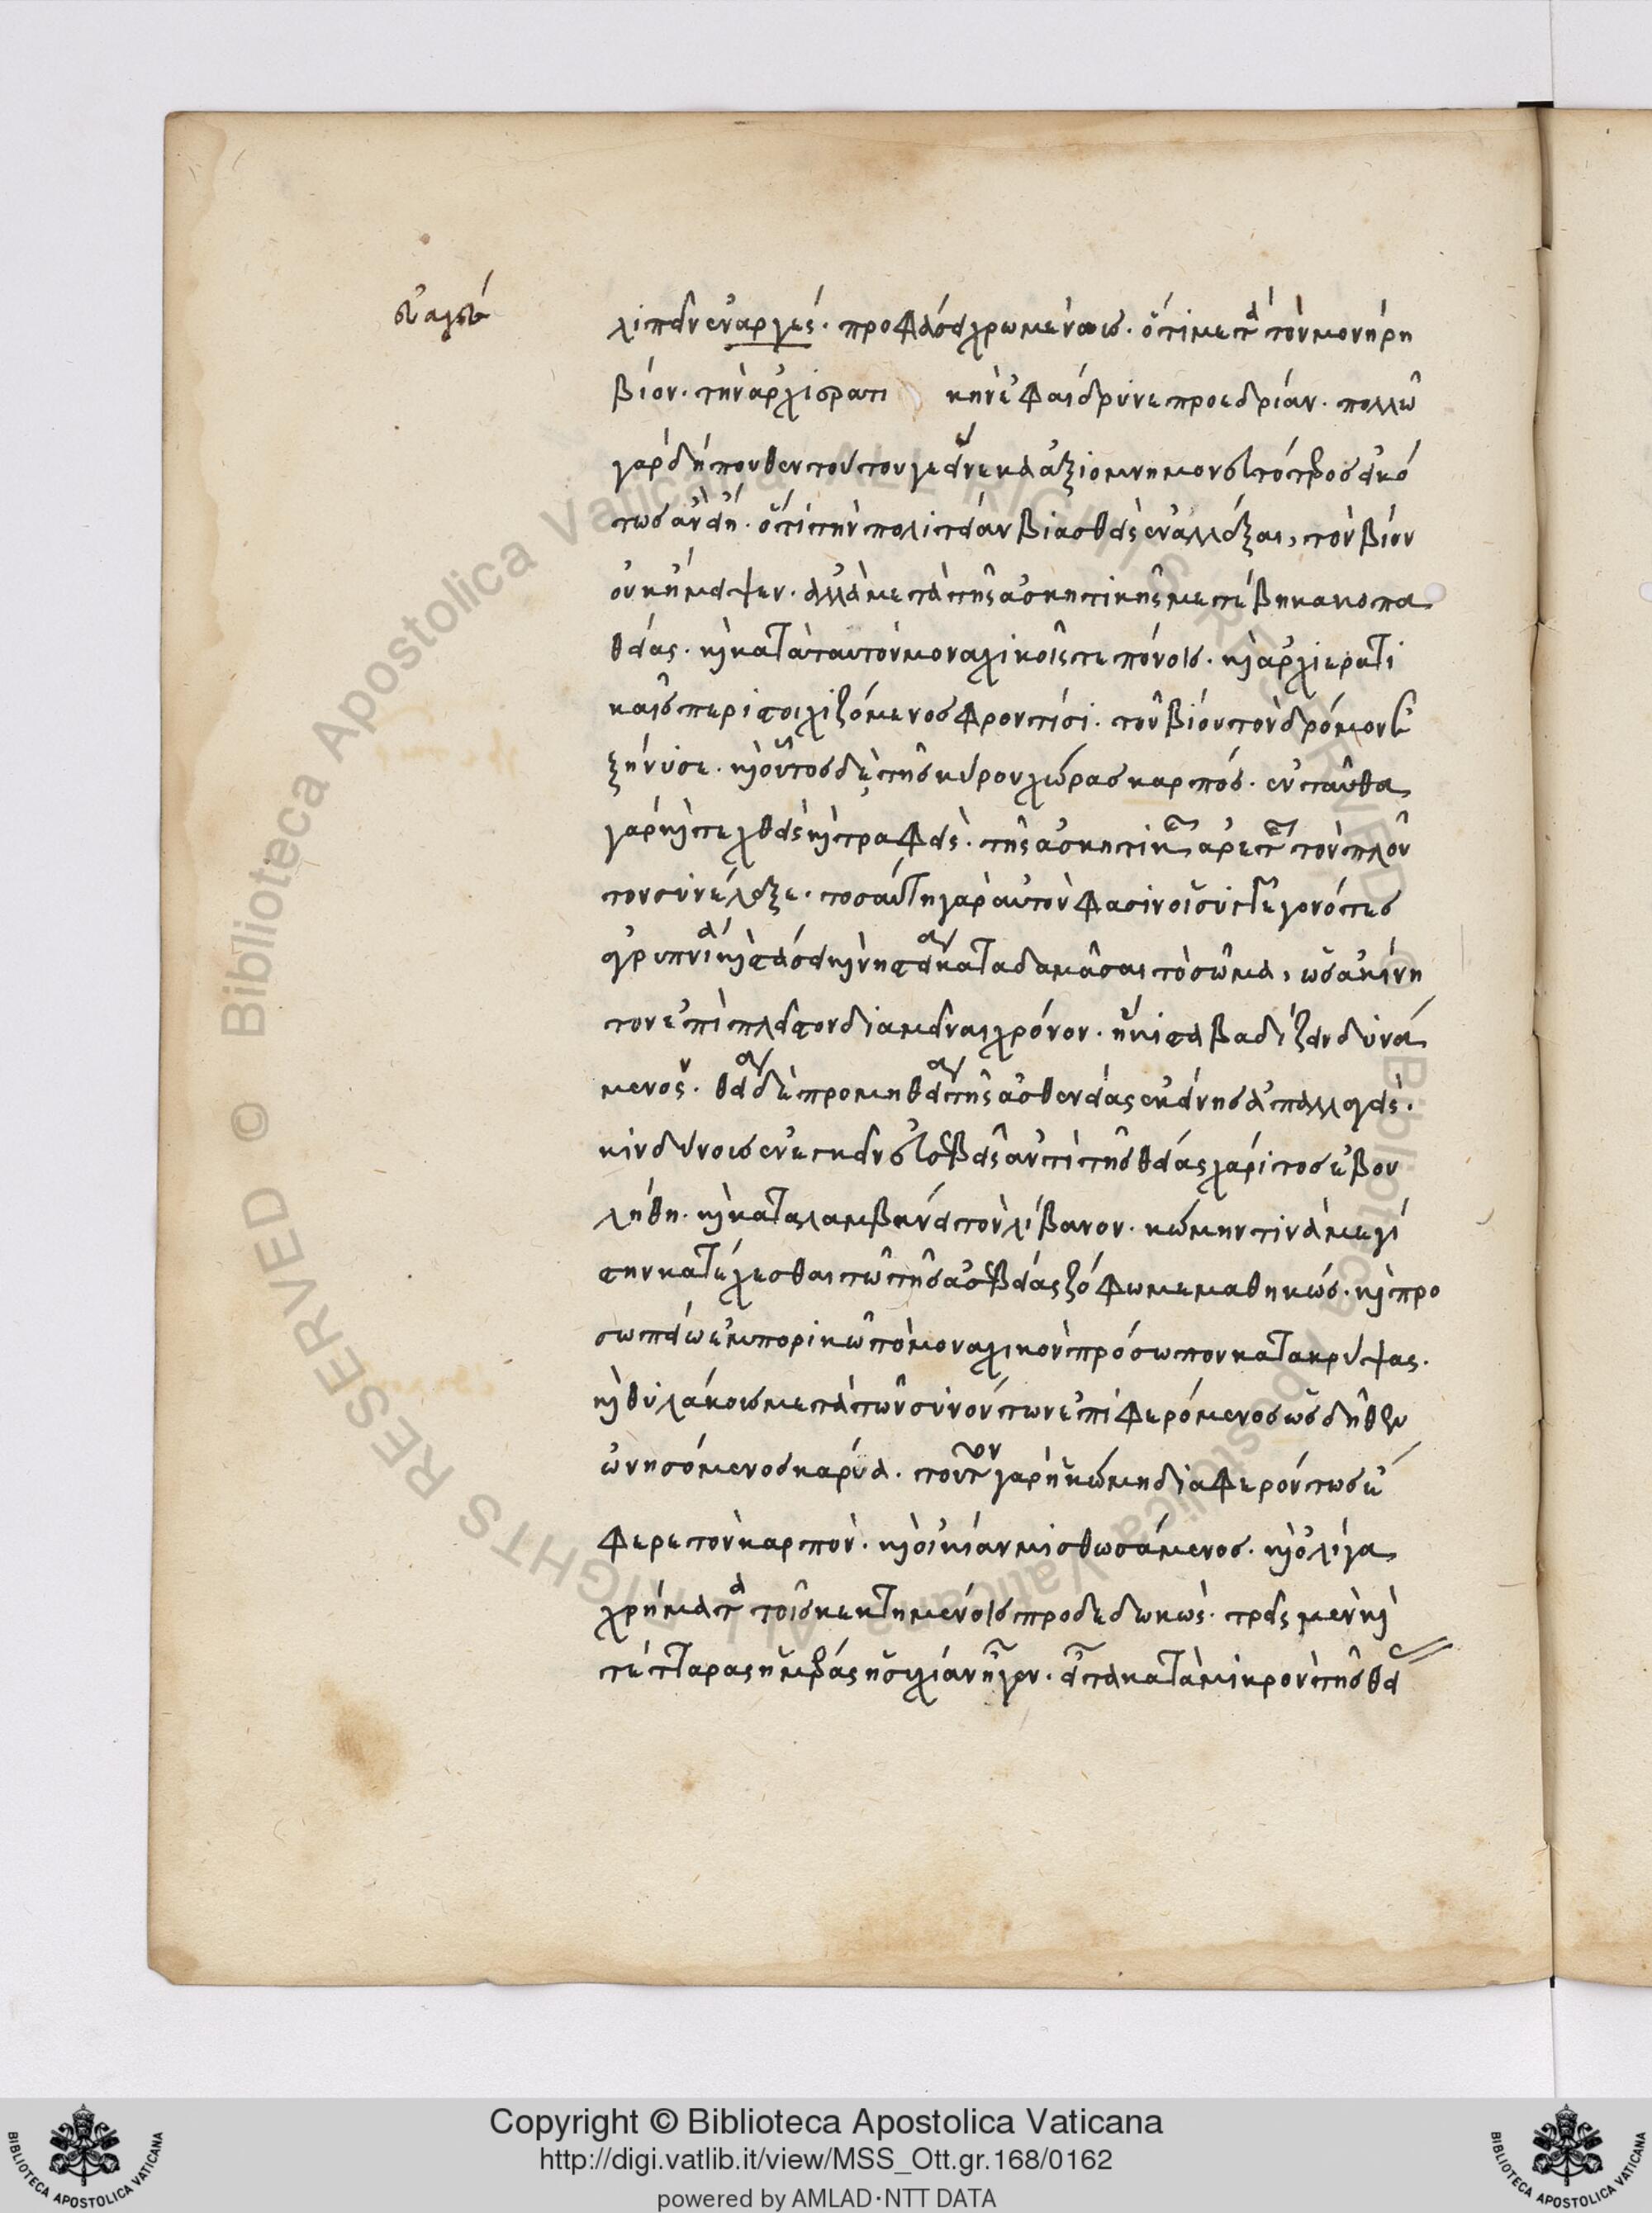 ἐναγὲς
λιπεῖν ἐναργές. προφάσει χρωμένοις. ὅτι μετὰ τὸν μονήρη
βίον. τὴν ἀρχιερατι κὴν ἐφαίδρυνε προεδρίαν. πολλῶ
γὰρ δήπουθεν τούτου γε εἵνεκα ἀξιομνημόνευτος εἰκό
τως ἂν εἴη. ὅτι τὴν πολιτείαν βιασθεὶς ἐναλλάξαι, τὸν βίον
οὐκ ἤμειψεν. ἀλλὰ μετὰ τῆς ἀσκητικῆς μετέβη κακοπα
θείας. καὶ κατὰ ταυτὸν μοναχικοῖς τε πόνοις. καὶ ἀρχιερατι
καῖς περιστοιχιζόμενος φροντίσι. τοῦ βίου τὸν δρόμον ἐ
ξήνυσε. καὶ οὗτος δὲ τῆς κύρου χώρας καρπός. ἐνταῦθα
γὰρ καὶ τεχθεὶς καὶ τραφεὶς. τῆς ἀσκητικῆς ἀρετῆς τὸν πλοῦ
τον συνέλεξε. τοσαύτη γὰρ αὐτὸν φασὶν οἱ συγγεγονότες
ἀγρυπνίᾳ καὶ στάσει καὶ νηστείᾳ καταδαμᾶσαι τὸ σῶμα, ὡς ἀκίνη
τον ἐπὶ πλεῖστον διαμεῖναι χρόνον. ἥκιστα βαδίζειν δυνά
μενος. θείᾳ δὲ προμηθείᾳ τῆς ἀσθενείας ἐκείνης ἀπαλλαγεὶς.
κινδύνοις ἐνεγκεῖν εὐσεβεῖς ἀντὶ τῆς θείας χάριτος ἐβου
λήθη. καὶ καταλαμβάνει τὸν λίβανον. κώμην τινὰ μεγί
στην κατέχεσθαι τῶ τῆς ἀσεβείας ζόφω μεμαθηκώς. καὶ προ
σωπείω ἐμπορικῶ τὸ μοναχικὸν πρόσωπον κατακρύψας.
καὶ θυλάκοις μετὰ τῶν συνόντων ἐπιφερόμενος ὡς δῆθεν
ὠνησόμενος κάρυα. τοῦτον γὰρ ἡ κώμη διαφερόντως ἔ
φερε τὸν καρπὸν. καὶ οἰκίαν μισθωσάμενος. καὶ ὀλίγα
χρήματα τοῖς κεκτημένοις προδεδωκὼς. τρεῖς μὲν καὶ
τέτταρας ἡμέρας ἡσυχίαν ἦγον. εἶτα κατὰ μικρὸν τῆς θεί
Copyright © Biblioteca Apostolica Vaticana
http://digi.vatlib.it/view/MSS_Ott.gr.168/0162
powered by AMLAD·NTT DATA
BIBLIOTECA APOSTOLICA VATICANA
BIBLIOTECA APOSTOLICA VATICANA